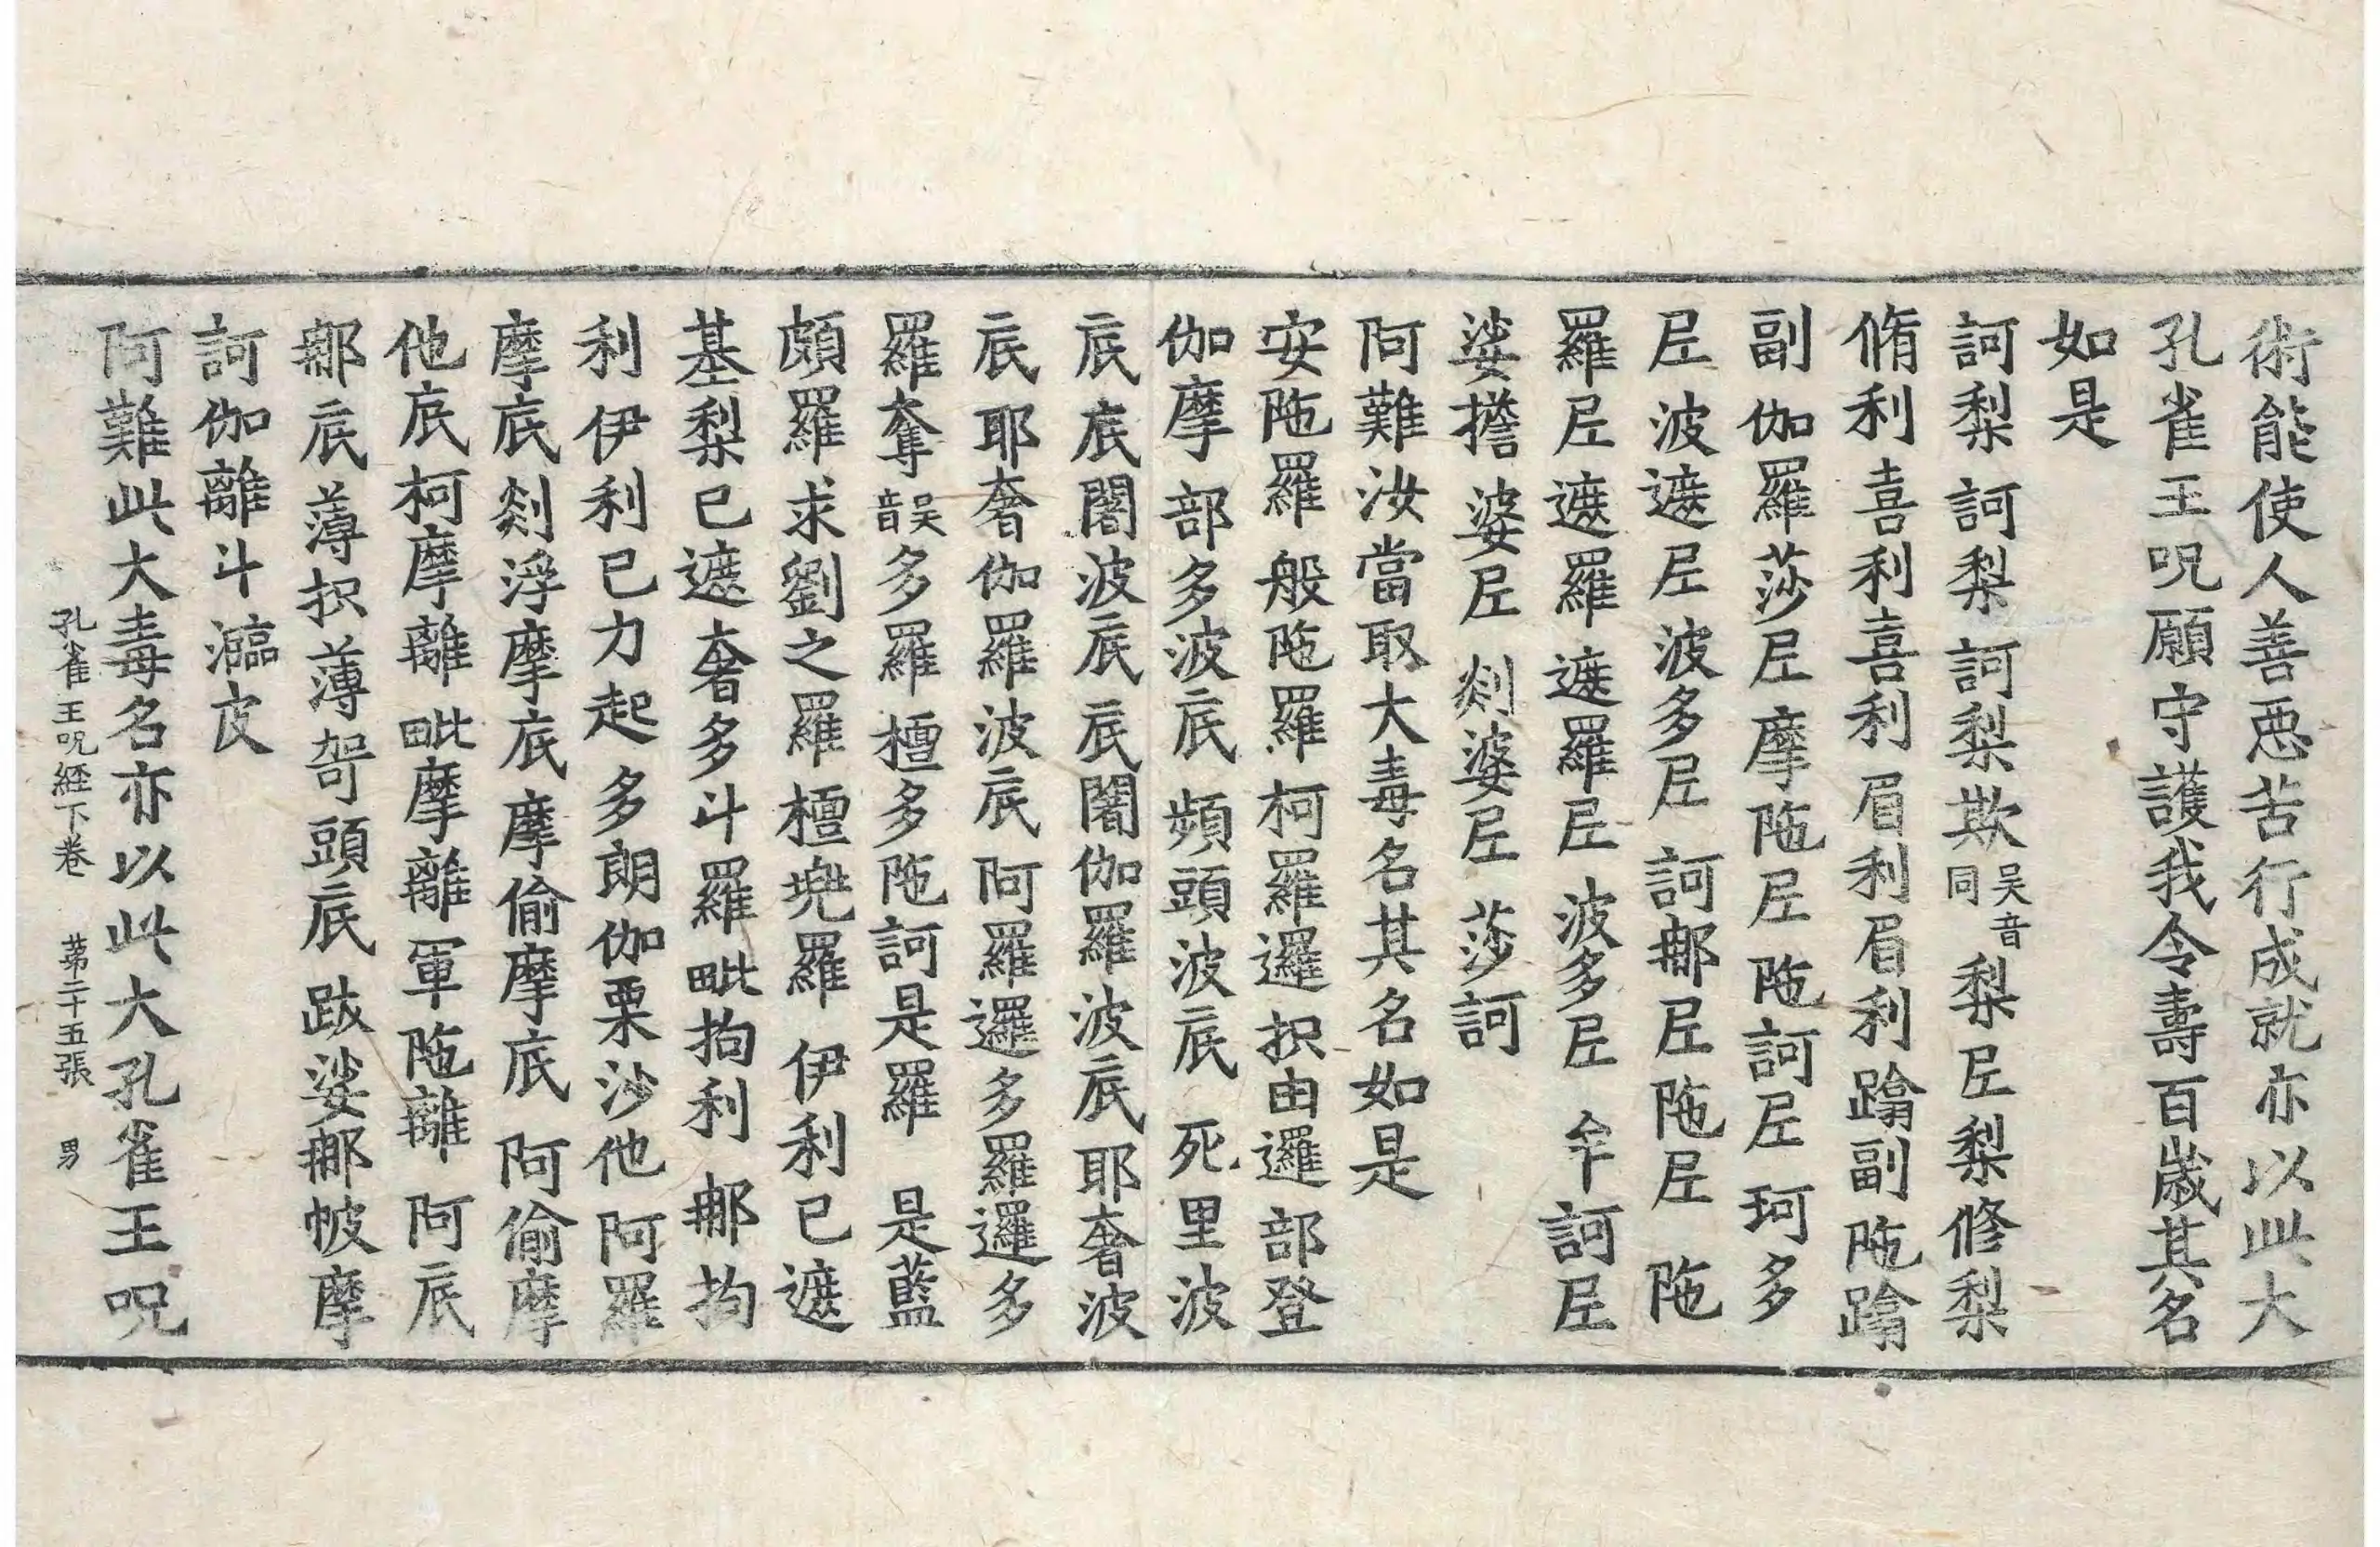 術能使人善惡苦行成就亦以此大
孔雀王呪願守護我令壽百歲其名
如是
訶梨訶梨訶梨欺吳音同梨𡰱梨修梨
脩利喜利喜利眉利眉利踰副陁踰
副伽羅莎𡰱摩陁𡰱陁訶𡰱珂多
𡰱波遮𡰱波多𡰱訶𨚗𡰱陁𡰱陁
羅𡰱遮羅遮羅𡰱波多𡰱牟訶𡰱
娑擔婆𡰱剡婆𡰱莎訶
阿難汝當取大毒名其名如是
安陁羅般陁羅柯羅邏抧由邏部登
伽摩部多波底頞頭波底死里波
底底闍波底底闍伽羅波底耶奢波
底耶奢伽羅波底阿羅邏多羅邏多
羅奪吳音多羅檀多陁訶是羅是藍
頗羅求劉之羅檀兠羅伊利已遮
基梨已遮奢多斗羅毗拘利𨚗拘
利伊利已力起多朗伽栗沙他阿羅
摩底剡浮摩底摩偷摩底阿偷摩
他底柯摩離毗摩離軍陁離阿底
𨚗底薄抧薄哿頭底跋娑𨚗帔摩
訶伽離斗
阿難此大毒名亦以此大孔雀王呪
孔雀王呪経下卷 苐二十五張 男